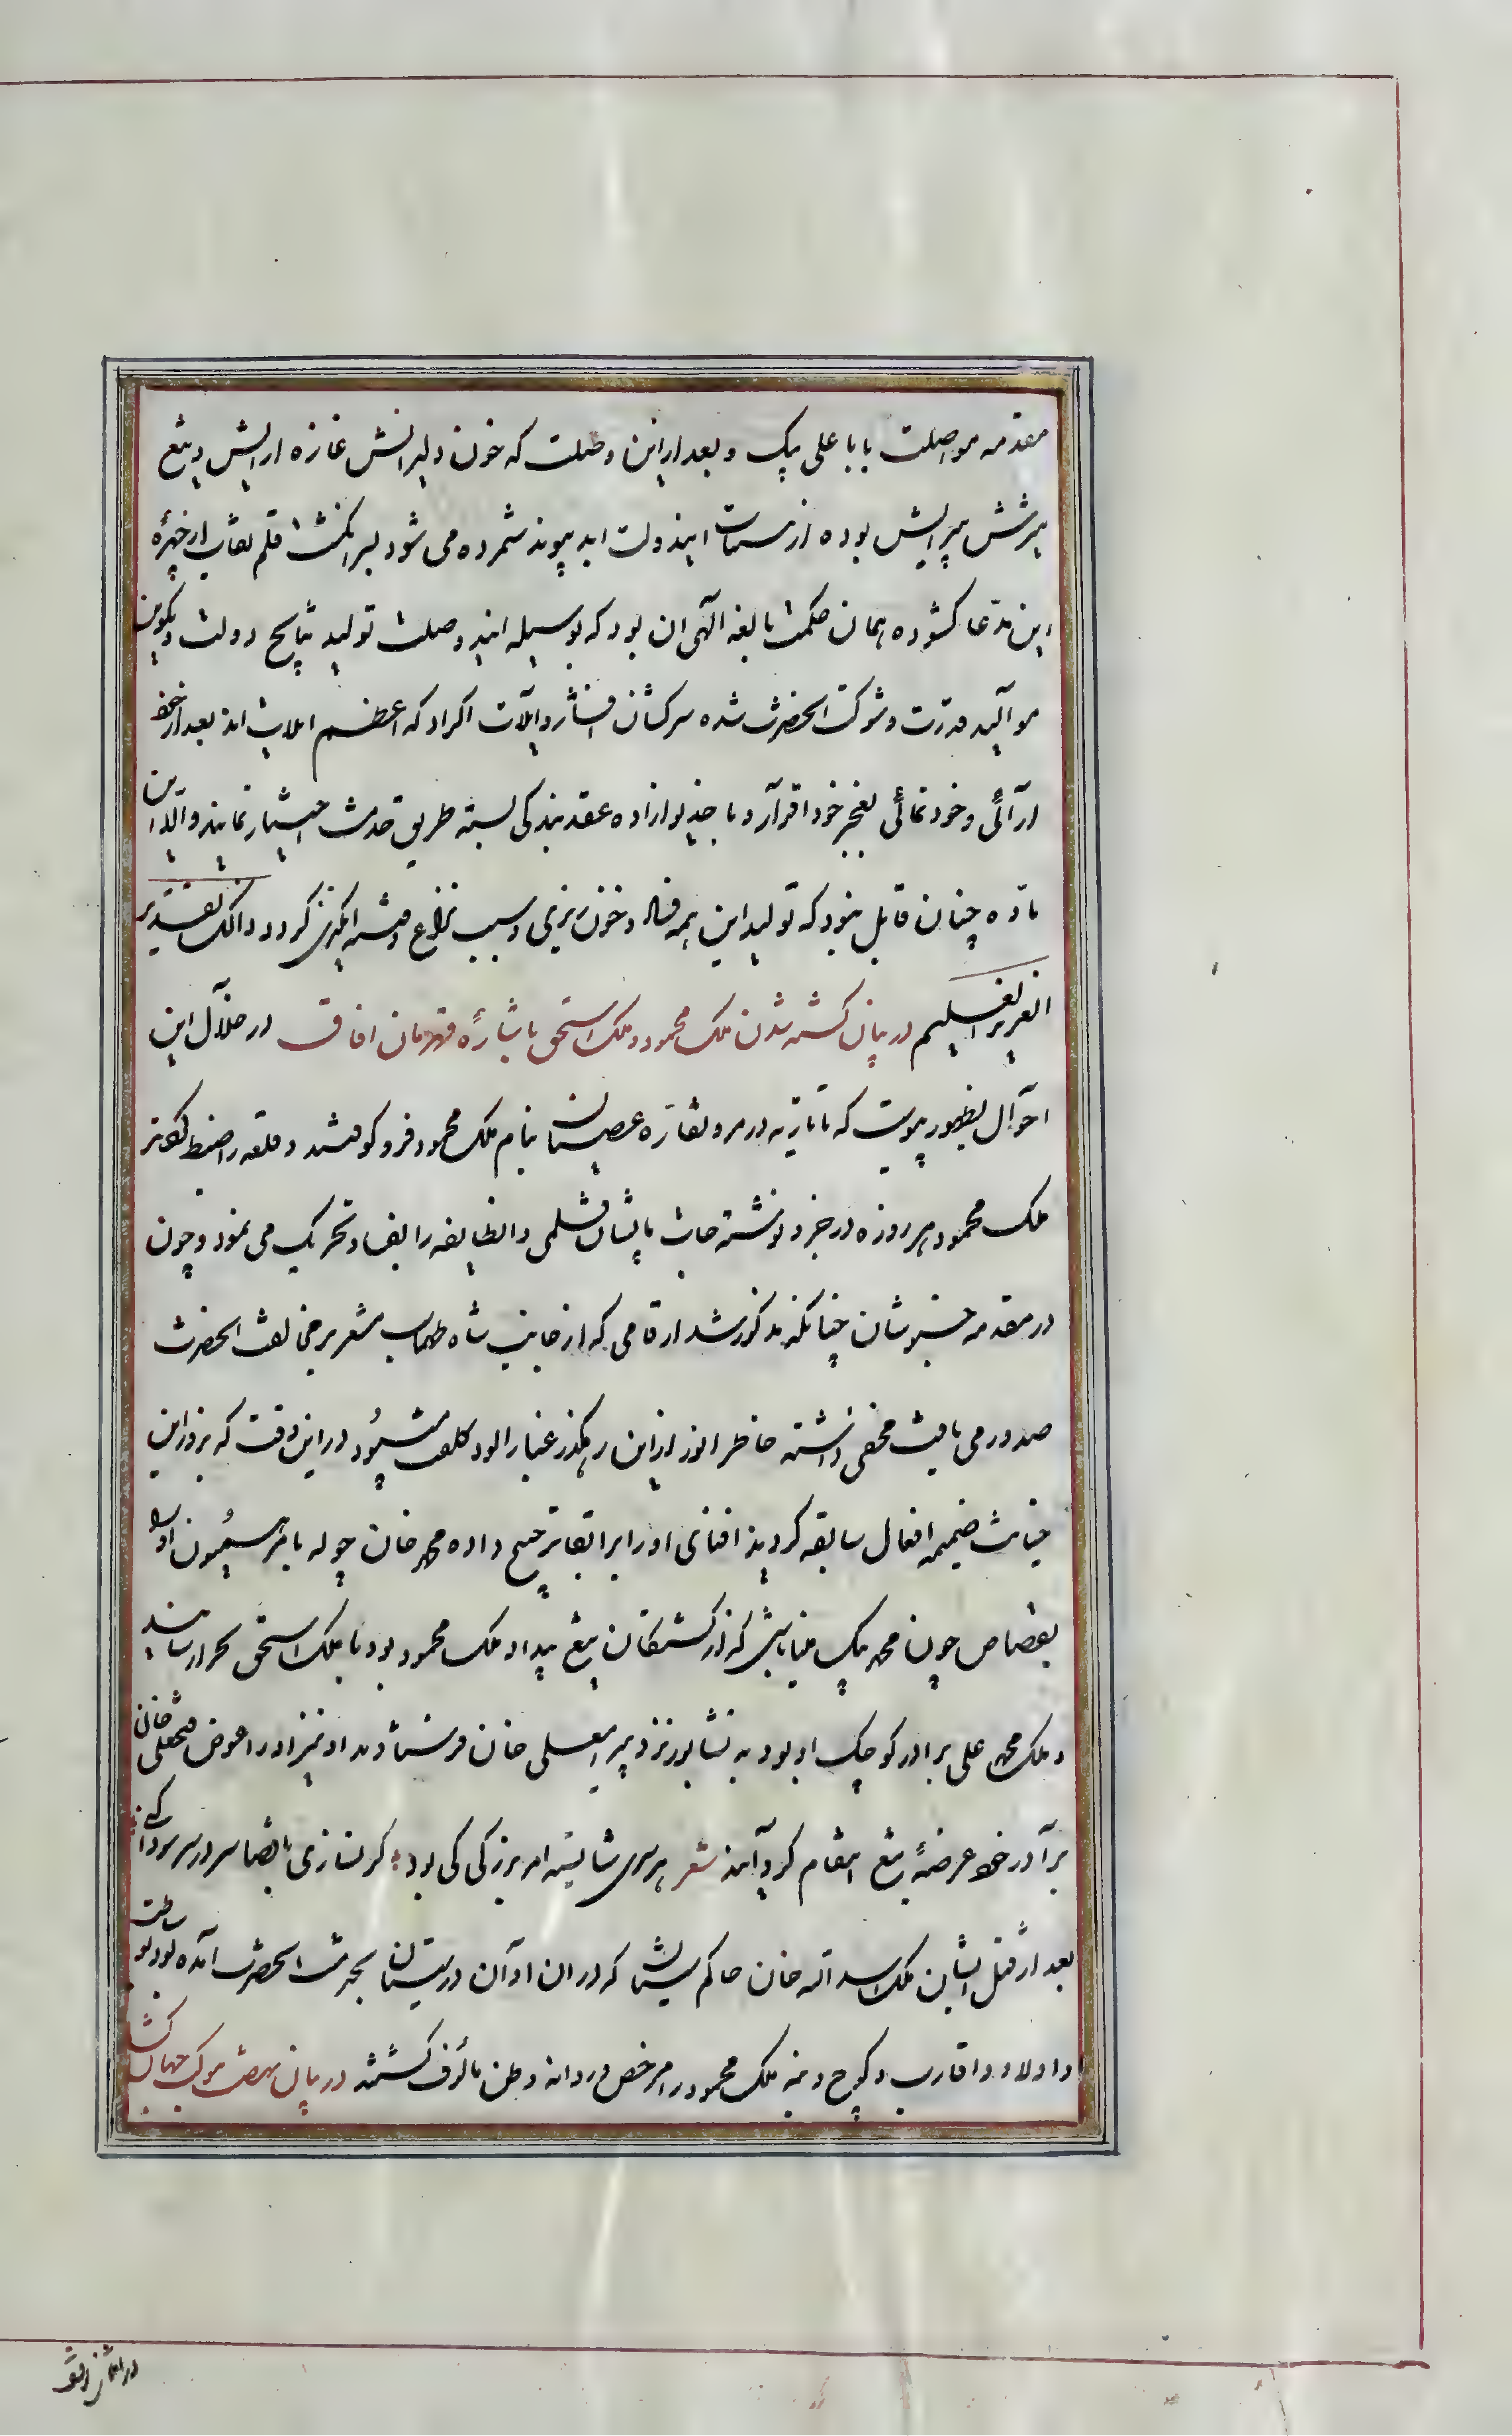 مقدمه مواصلت بابا علی بیک و بعد از این وصلت که خون دلیرانش غازه ارایش و تیغ
پرشش پیرایش بوده از سمات ایندولت ابد پیوند شمرده می شود بسر انکشت قلم نقاب از چهرهٔ
این مدّعا کشوده همان حکمت بالغه الهی ان بود که بوسیله این وصلت تولید نتایج دولت و تکوین
موالید قدرت و شوکت انحضرت شده سرکشان افشار و ایلات اکراد که اعظم ایلات اند بعد از
ارآئی و خودنمائی بعجز خود اقرار و با خدیو ازاده عقد بندکی بسته طریق خدمت اختیار نمایند و الّا این
مادّه چنان قابل نبود که تولید این همه فساد و خون ریزی و سبب نزاع و فتنه انکیزی کردد ذالک تقدیر
العزیز العلیم در بیان کشته شدن ملک محمود و ملک اسحق باشارهٔ قهرمان افاق در خلال این
احوال بظهور پیوست که تاتاریه در مرو نقاره عصیان بنام ملک محمود فرو کوفتند و قلعه را ضبط کرده
ملک محمود هر روزه در خبر و نوشته جات بایشان قلمی و انطایفه را بفساد تحریک می نمود و چون
در مقدمه خبوشان چنانکه مذکور شد ارقامی که از جانب شاه طهماسب مشعر بر مخالفت انحضرت
صدور می یافت مخفی داشته خاطر انور از این رهکذر غبار الود کلفت میبود در این وقت که بروز این
خیانت ضمیمه افعال سابقه کردید افنای او را بر ابقا ترجیح داده محمد خان چوله بامر همیون او را
بقصاص خون محمد بیک مین باشی که از کشتکان تیغ بیداد ملک محمود بود با ملک اسحق بجزا رسانید
و ملک محمد علی برادر کوچک او بود به نشابور نزد بیر امعلی خان فرستادند او نیز او را عوض فتحعلی خان
برادر خود عرضهٔ تیغ انتقام کردانید شعر هر سری شایسته امر بزرکی کی بود کر نسازی با قضا سر در سر سودا کنی
بعد از قتل ایشان ملک اسد الله خان حاکم سیستان که در ان اوان در سیستان بخدمت انحضرت امده بود
و اولاد و اقارب و کوچ و بنه ملک محمود را مرخص و روانه وطن مألوف کشتند در بیان نهضت موکب جهان کشا